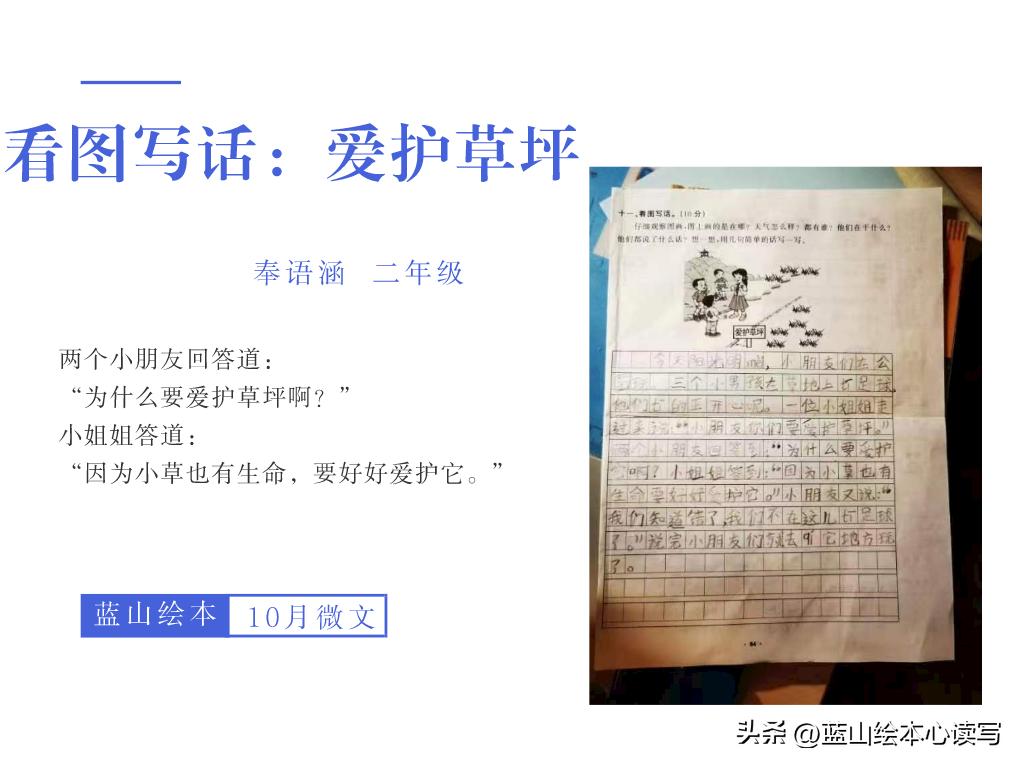 看图写话：爱护草坪
奉语涵 二年级
两个小朋友回答道：
“为什么要爱护草坪啊？”
小姐姐答道：
“因为小草也有生命，要好好爱护它。”
蓝山绘本 10月微文
十一、看图写话。(10分)
仔细观察图画，图上画的是在哪？天气怎么样？都有谁？他们在干什么？
他们都说了什么话？想一想，用几句简单的话写一写。
爱护草坪
今天阳光明媚，小朋友们在公
三个小男孩在草地上打足球，
他们的正开心呢。一位小姐姐走
过来说：“小朋友你们要爱护草坪。”
两个小朋友回答到：“为什么要爱护
啊？小姐姐答到：“因为小草也有
生命要好好爱护它。”小朋友又说：“
我们知道错了，我们不在这儿打足球
了。”说完小朋友们就去别它地方玩
了。
·84·
头条 @蓝山绘本心读写